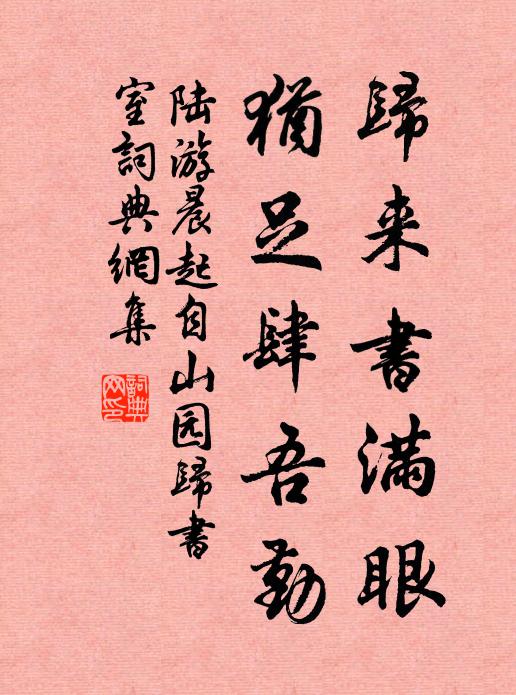 歸来書滿眼
猶足肆吾勤
陆游晨起自山园歸書
室詞典網集
詞典網印